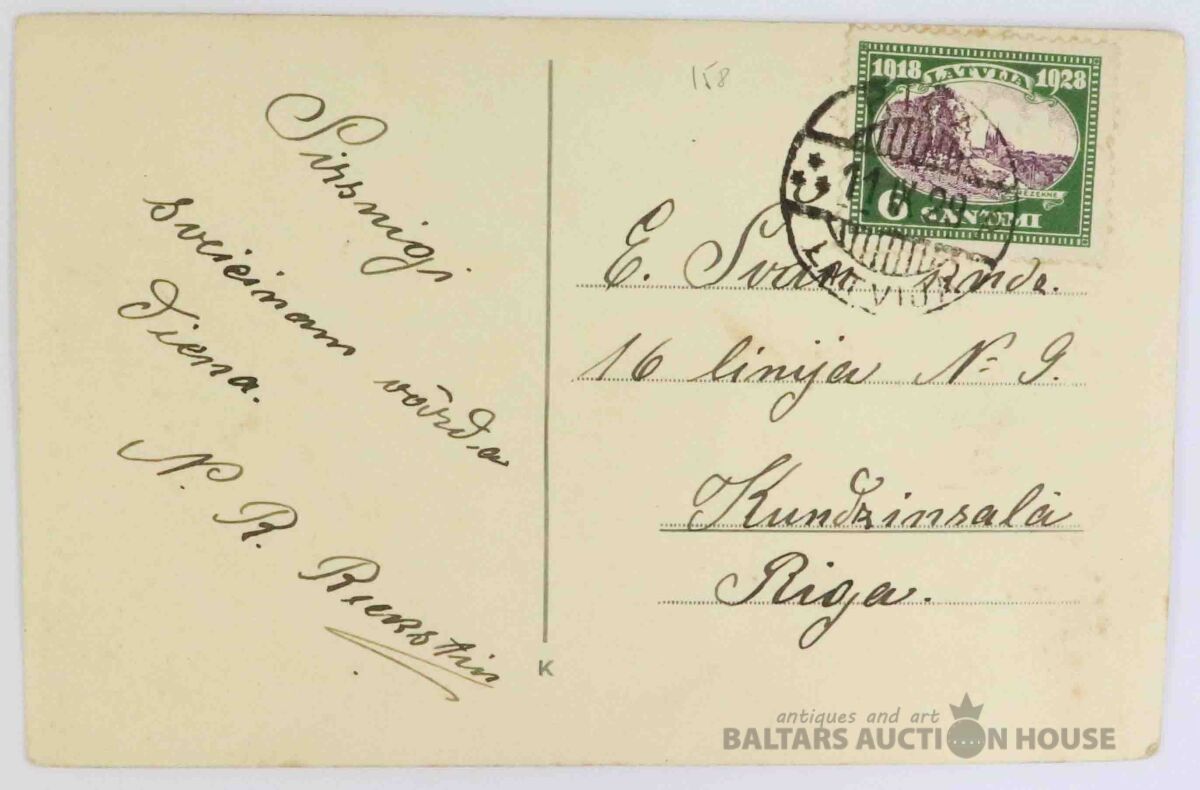 Sirsnigi
sveicinam vārda
Diena.
N. R. Riekstin
K
158
1918 LATVIJA 1928
RĒZEKNE
6 SANTĪMI
11 IX 29
LATVIJA
E.
16 linija № 9.
Kundzinsalā
Riga.
antiques and art
BALTARS AUCTION HOUSE